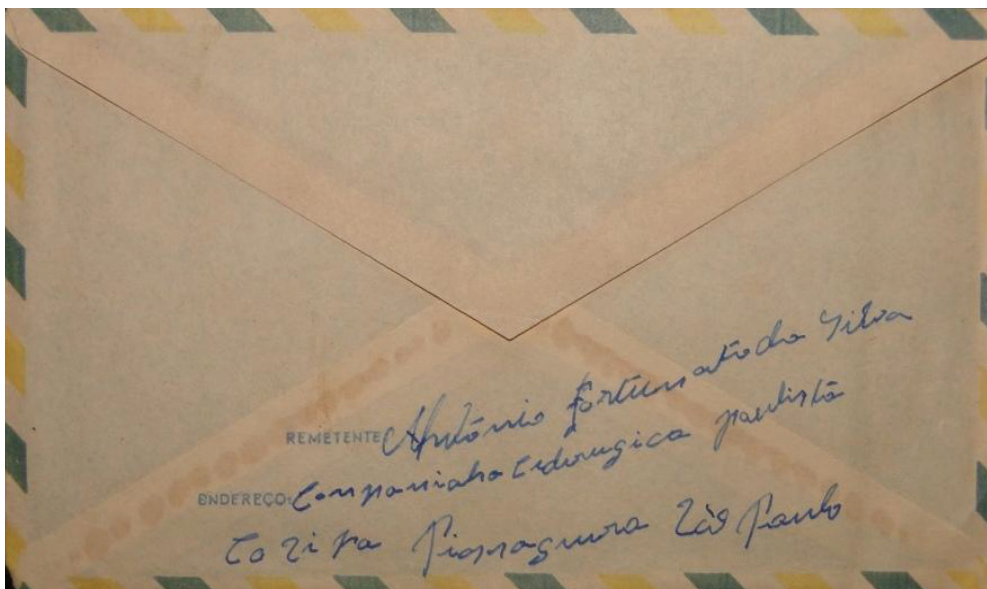 REMETENTE António Fortunato da Silva
ENDEREÇO: Companiaha Ciderugica paulista
Cozipa Piassaguera São Paulo